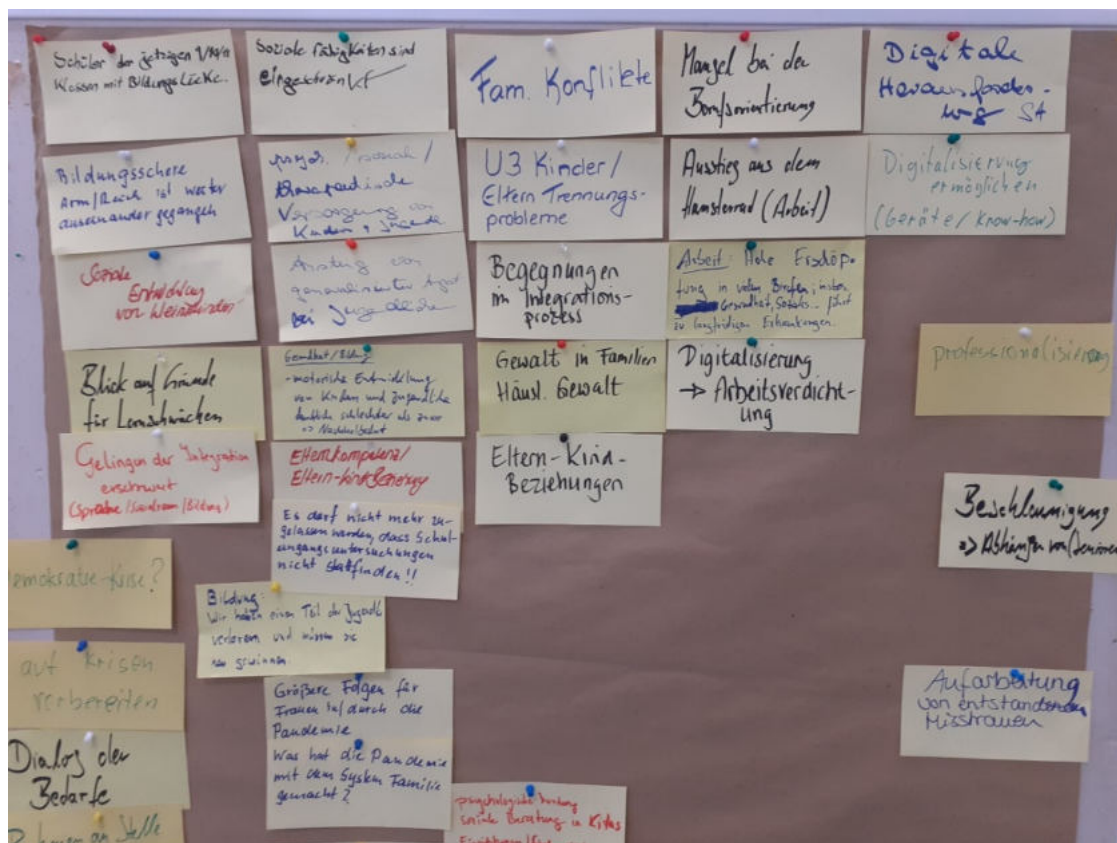 Schüler der jetzigen
Klassen mit Bildungslücke.
Bildungsschere
Arm/Reich ist weiter
auseinander gegangen
Soziale
Entwicklung
von Kleinkindern
Blick auf Gründe
für Lernschwächen
Gelingen der Integration
erschwert
(Sprache/Sozialraum/Bildung)
Soziale Fähigkeiten sind
eingeschränkt
psych. / sozial /
therapeutische
Versorgung von
Kinder + Jugendl.
Anstieg von
generalisierter Angst
bei Jugendliche
Gesundheit/Bildung
- motorische Entwicklung
von Kindern und Jugendliche
deutlich schlechter als zuvor
=> Nachholbedarf
Elternkompetenz/
Eltern-Kind Beziehung
Es darf nicht mehr zu-
gelassen werden, dass Schul-
eingangsuntersuchungen
nicht stattfinden!!
Bildung:
Wir haben einen Teil der Jugendl.
verloren und müssen sie
neu gewinnen.
Größere Folgen für
Frauen in/durch die
Pandemie
Was hat die Pandemie
mit dem System Familie
gemacht?
Fam. Konflikte
U3 Kinder/
Eltern Trennungs-
probleme
Begegnungen
im Integrations-
prozess
Gewalt in Familien
Häusl. Gewalt
Eltern-Kind-
Beziehungen
psychologische Beratung
soziale Beratung in Kitas
Mangel bei der
Berufsorientierung
Ausstieg aus dem
Hamsterrad (Arbeit)
Arbeit: Hohe Erschöp-
fung in vielen Berufen, insbes.
Gesundheit, Soziales... führt
zu langfristigen Erkrankungen.
Digitalisierung
→ Arbeitsverdicht-
ung
Digitale
Herausforder-
ung SA
Digitalisierung
ermöglichen
(Geräte/Know-how)
professionalisierung
Beschleunigung
=> Abhängen von Senioren
Aufarbeitung
von entstandenem
Misstrauen
emokratie-Krise?
auf Krisen
vorbereiten
Dialog der
Bedarfe